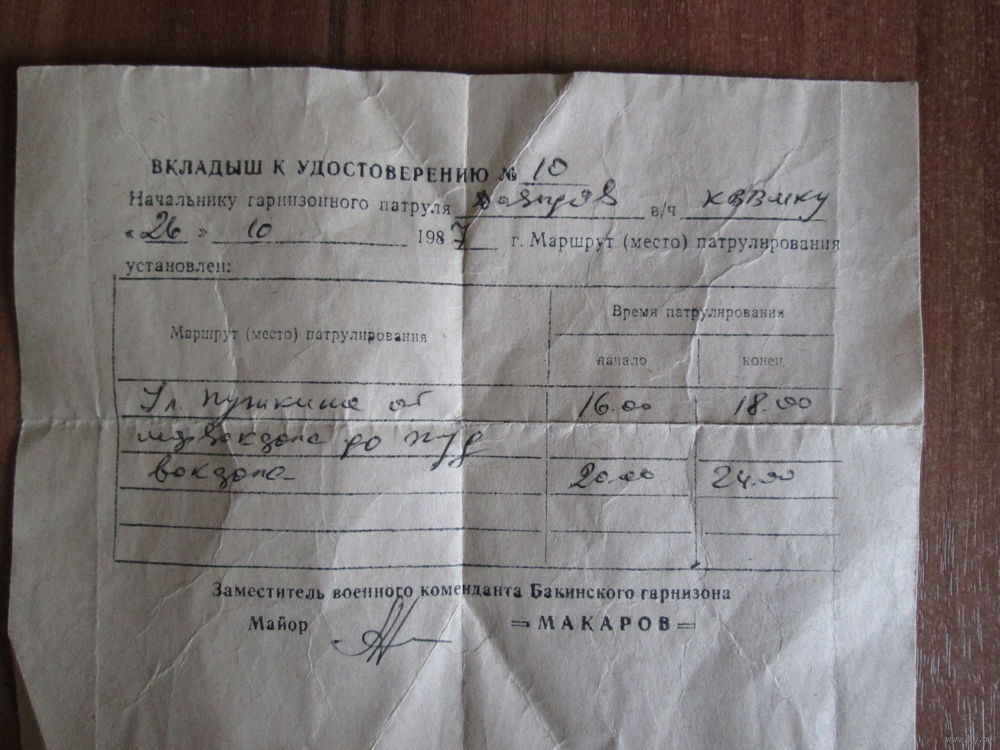 ВКЛАДЫШ К УДОСТОВЕРЕНИЮ № 10
Начальнику гарнизонного патруля в/ч КВВМКУ
«26» 10 1987 г. Маршрут (место) патрулирования
установлен:
Маршрут (место) патрулирования
Время патрулирования
начало конец
Ул. Пушкина от 16.00 18.00
до ж/д
вокзала 20.00 24.00
Заместитель военного коменданта Бакинского гарнизона
Майор =МАКАРОВ=